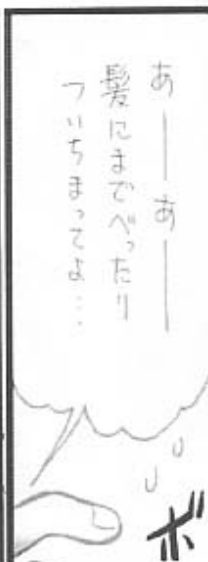 あーーあーー
髪にまでべったり
ついちまってよ…
ボ